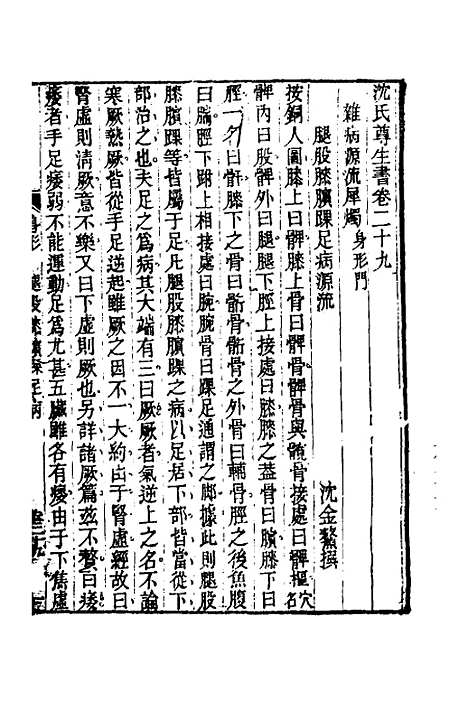 沈氏尊生書卷二十九
雜病源流犀燭身形門
沈金鰲撰
腿股膝臏踝足病源流
按銅人圖膝上曰髀骨髀骨與髖骨接處曰髀樞穴名
髀內曰股髀外曰腿腿下脛上接處曰膝膝之蓋骨曰臏膝下曰
脛一名曰骭脛之骨曰䯒䯒骨之外骨曰輔骨脛之後魚腹
曰腨脛下跗上相接處曰腕腕骨曰踝足通謂之脚據此則腿股
膝臏踝等皆屬于足凡腿股膝臏踝之病以足括下部皆當從下
部治之也夫足之爲病其大端有三曰厥厥者氣逆上之名不論
寒厥熱厥皆從手足逆起雖厥之因不一大約由于腎虛經故曰
腎虛則清厥意不樂又曰下虛則厥也另詳諸厥篇茲不贅曰痿
痿者手足痿弱不能運動足爲尤甚五臟雖各有痿由于下焦虛
身形
腿股膝臏踝足病
卷二十九